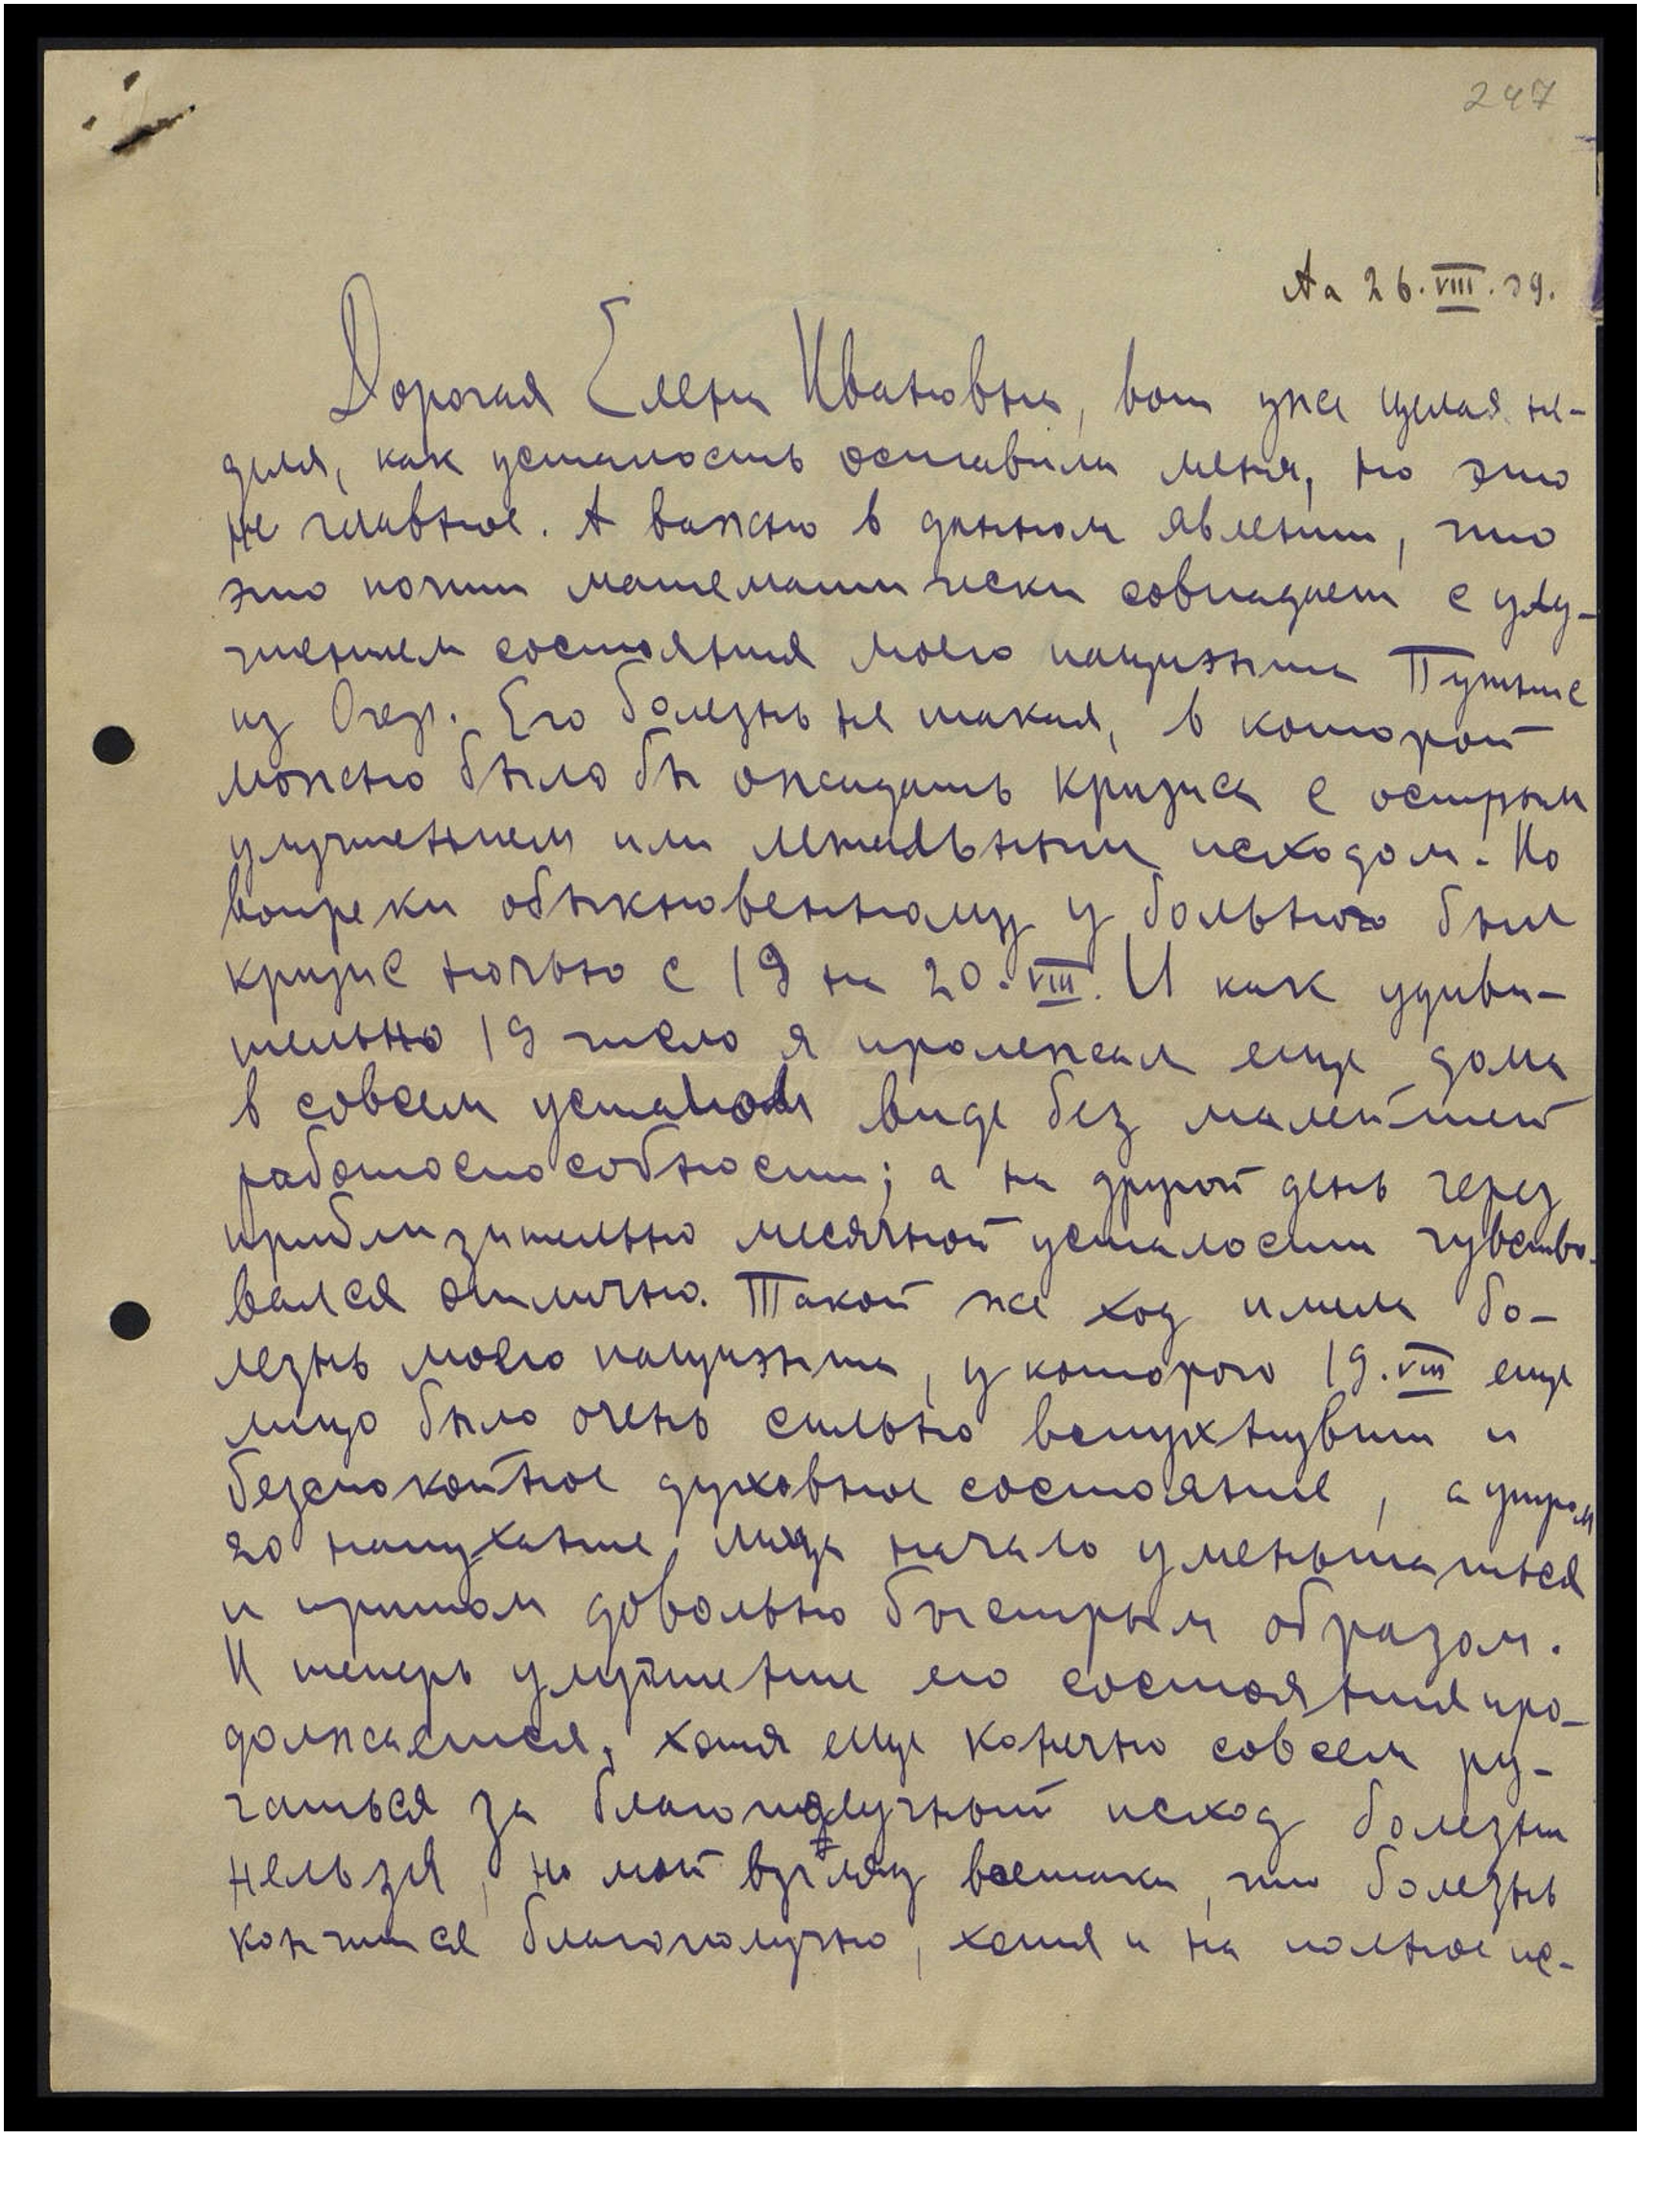 247
Аа 26.VIII.39.
Дорогая Елена Ивановна, вот уже целая не-
деля, как усталость оставила меня, но это
не главное. А важно в данном явлении, что
это почти математически совпадает с улу-
чшением состояния моего пациэнта
из Огр. Его болезнь не такая, в которой
можно было бы ожидать кризиса с острым
улучшением или летальным исходом. Но
вопреки обыкновенному у больного был
кризис ночью с 19 на 20.VIII. И как удиви-
тельно 19 число я пролежал еще дома
в совсем усталом виде без малейшей
работоспособности; а на другой день через
приблизительно месячной усталости чувство-
вался отлично. Такой же ход имела бо-
лезнь моего пациэнта, у которого 19.VIII еще
лицо было очень сильно вспухнувши и
безспокойное духовное состояние, а утром
20 напухание лица начало уменьшаться
и притом довольно быстрым образом.
И теперь улучшение его состояния про-
должается, хотя еще конечно совсем ру-
чаться за благополучный исход болезни
нельзя, но мой взгляд всетаки, что болезнь
кончится благополучно, хотя и на полное ис-